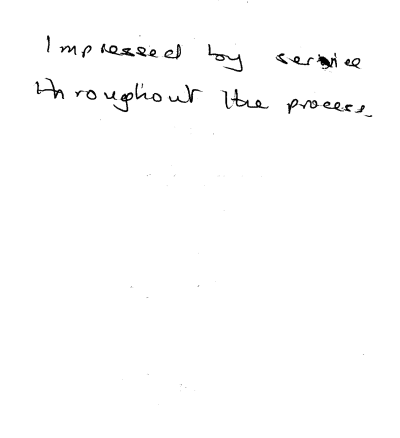 Impressed by service
throughout the process.